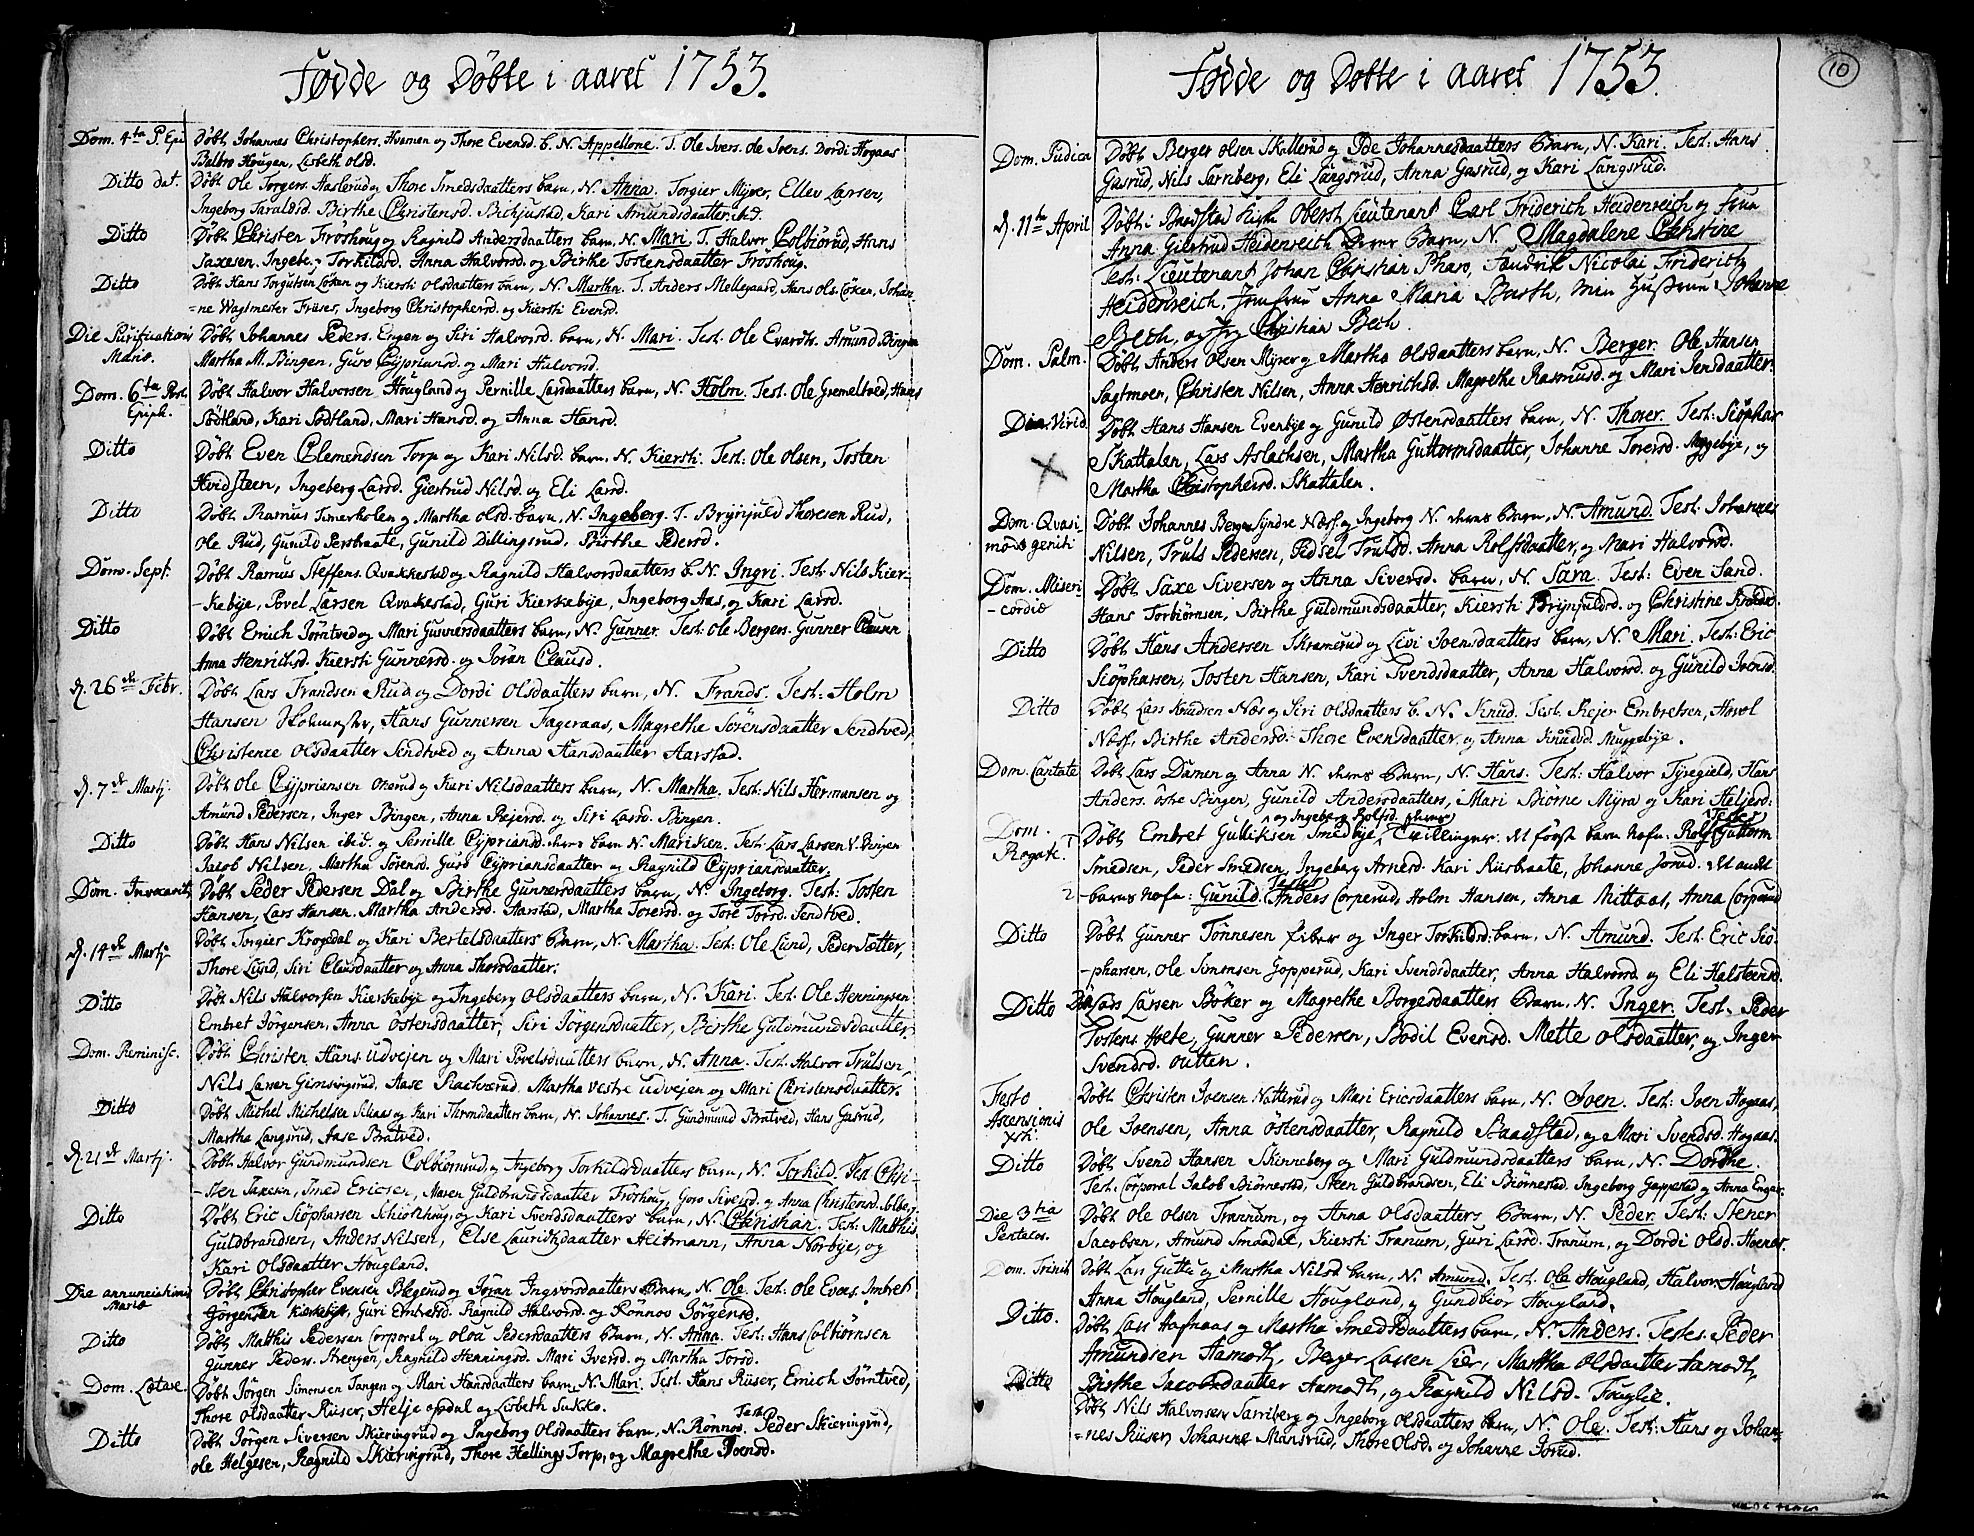 Fødde og Døbte i aaret 1753.
Dom. 4ta P. Epi. Døbt Johannes Christophers. Hvamen og Thore Evensd. b. N. Appellone. T. Ole Ivers. Ole Svens. Dordi Hogaas
Balbro Hougen, Lisbeth Olsd.
Ditto dat. Døbt Ole Torgers. Haslerud og Thore Smedsdaatters barn, N. Anna. Torgier Myrer, Ellev Larsen,
Ingeborg Taraldsd. Birthe Christensd. Bichjustad, Kari Amundsdaatter ibid.
Ditto Døbt Christen Froshoug og Ragnild Andersdaatters barn, N. Mari. T. Halvor Colbiørud, Hans
Saxesen. Ingeb. Torkildsd. Anna Halvorsd. og Birthe Tostensdaatter Froshoug.
Ditto Døbt Hans Torgutsen Løken og Kiersti Olsdaatters barn, N. Martha. T. Anders Mellegaard, Hans Ols. Løken, Johan-
=ne Wagtmester Friises, Ingeborg Christophersd. og Kiersti Evensd.
Die Purification Døbt Johannes Peders. Engen og Siri Halvorsd. barn, N. Mari. Test. Ole Evardts. Amund Bingen
Mariæ. Martha M. Bingen, Guro Cypriansd. og Mari Halvorsd.
Dom. 6ta Post. Døbt Halvor Halvorsen Hougland og Pernille Larsdaatters barn, N. Holm. Test. Ole Gremeltved, Hans
Epiph. Sødtland, Kari Sødtland, Mari Hansd. og Anna Hansd.
Ditto Døbt Even Clemendsen Torp og Kari Nilsd. barn, N. Kiersti. Test. Ole Olsen, Tosten
Hvidsteen, Ingeborg Larsd. Giertrud Nilsd. og Eli Larsd.
Ditto Døbt Rasmus Timerholen og Martha Olsd. barn, N. Ingeborg. T. Brynjuld Thoresen Rud,
Ole Rud, Gunild Persbraate, Gunild Dillingsrud, Birthe Pedersd.
Dom. Sept. Døbt Rasmus Steffens. Qvakkestad og Ragnild Halvorsdaatters b. N. Ingri. Test. Nils Kier-
-kebye, Povel Larsen Qvakestad, Guri Kierkebye, Ingeborg Aas, og Kari Larsd.
Ditto Døbt Errich Jørntved og Mari Gunnersdaatters barn, N. Gunner. Test. Ole Bergers. Gunner Clausen
Anna Henrichsd. Kiersti Gunnersd. og Jøran Clausd.
d. 26de Febr. Døbt Lars Frandsen Rud og Dordi Olsdaatters barn, N. Frands. Test: Holm
Hansen Holmester, Hans Gunnersen Fageraas, Magrethe Sørensdaatter Sendtved,
Christence Olsdaatter Sendtved og Anna Hansdaatter Aarstad.
d. 7de Martj. Døbt Ole Cypriansen Onsrud og Kari Nilsdaatters barn, N. Martha. Test: Nils Hermansen og
Amund Pedersen, Inger Bingen, Anna Rejersd. og Siri Larsd. Bingen.
Ditto Døbt Hans Nilsen ibid. og Pernille Cypriansd. deres barn N. Mariken. Test. Lars Larsen V. Bingen
Jacob Nilsen, Martha Sørensd. Guro Cypriansdaatter og Ragnild Cypriansdaatter.
Dom. Invocavit. Døbt Peder Pedersen Dal og Birthe Gunnersdaatters barn, N. Ingeborg. Test. Tosten
Hansen, Lars Hansen. Martha Andersd. Aarstad, Martha Torersd. og Tore Torsd. Sendtved.
d. 14de Martj. Døbt Torgier Krogedal og Kari Bertelsdaatters Barn, N. Martha. Test. Ole Lund, Peder Sætter,
Thore Lund, Siri Clausdaatter og Anna Thorsdaatter.
Ditto Døbt Nils Halvorsen Kierkebye og Ingeborg Olsdaatters barn, N. Kari. Test. Ole Henningsen
Embret Jørgensen, Anna Østensdaatter, Siri Jørgensdaatter, Berthe Guldmundsdaatter.
Dom. Reminisc. Døbt Christen Hans. Udvejen og Mari Povelsdaatters barn, N. Anna. Test. Halvor Trulsen,
Nils Larsen Gimsingrud, Aase Rachværud. Martha Vestre Udvejen og Mari Christensdaatter.
Ditto Døbt Michel Michelsen Silaas og Kari Thronsdaatters barn, N. Johannes. T. Gundmund Bratved, Hans Gasrud,
Martha Langsrud, Aase Bratved.
d. 21de Martj. Døbt Halvor Gundmundsen Colbiørnsrud og Ingeborg Torkildsdaatters barn, N. Torkild. Test. Chri-
-sten Saxesen, Smed Ericsen, Maren Guldbrandsdaatter Froshoug, Goro Siversd. og Anna Christensd. Solberg.
Ditto Døbt Eric Siøpharsen Schiørshoug, og Kari Svendsdaatters barn, N. Christian. Test: Matthis
Guldbrandsen, Anders Nilsen, Else Lauritzdaatter Heitmann, Anna Norbye, og
Kari Olsdaatter Hougland.
Die annunciationis Døbt Christopher Evensen Blegerud og Jøran Ingvorsdaatters Barn, N. Ole. Test. Ole Evens. Imbret
Mariæ Jørgensen Kierkebye, Guri Embretsd. Ragnild Halvorsd. og Rønnov Jørgensd.
Ditto Døbt Matthis Pedersen Corporal og Oloa Pedersdaatters Barn, N. Anna. Test. Hans Colbiørnsen
Gunner Peders. Strengen, Ragnild Henningsd. Mari Iversd. og Martha Torsd.
Dom. Lætare. Døbt Jørgen Simonsen Tangen og Mari Hansdaatters barn, N. Mari. Test. Hans Riiser, Errich Jørntved,
Thore Olsdaatter Riiser, Helje Opdal og Lisbeth Sukke.
Ditto Døbt Jørgen Siversen Skieringrud og Ingeborg Olsdaatters barn, N. Rønnov. Test. Peder Skieringrud,
Ole Helgesen, Ragnild Skieringrud, Thore Hellings Torp, og Magrethe Joensd.
10
Fødde og Døbte i aaret 1753.
Dom. Judica Døbt Berger Olsen Skallerud og Ide Johannesdaatters Barn, N. Kari. Test: Hans
Gasrud, Nils Sarriberg, Eli Langsrud, Anna Gasrud, og Kari Langsrud.
d. 11te April Døbt: Oberst Lieutenant Carl Friderich Heidenreich og Frue
Anna Giertrud Heidenreich deres Barn, N. Magdalene Christine
Test: Lieutenant Johan Christian Pharo, Fendrik Nicolai Friderich
Heidenreich, Jomfrue Anna Maria Barth, min Hustrue Johanne
Bech, og Jeg Christian Bech.
Dom. Palm. Døbt Anders Olsen Myrer og Martha Olsdaatters barn, N. Berger. Ole Hansen
Sagtmoen, Christen Nilsen, Anna Henrichsd. Magrethe Rasmusd. og Mari Jensdaatter.
Die Virid. Døbt Hans Hansen Evenbye og Gunild Østensdaatters barn, N. Thorer. Test: Siøphar
Skattalen, Lars Aslachsen, Martha Guttormsdaatter, Johanne Torersd. Muggebye, og
Martha Christophersd. Skattalen.
Dom. Quasi Døbt Johannes Berger Syndre Næss og Ingeborg N. deres Barn, N. Amund. Test. Johannes
modo geniti Nilsen, Truls Pedersen, Sidsel Trulsd. Anna Rolfsdaatter, og Mari Halvorsd.
Dom. Miseri Døbt Saxe Siversen og Anna Siversd. barn, N. Sara. Test: Even Sand.
-cordiæ Hans Torbiørnsen, Birthe Guldmundsdaatter, Kiersti Brynjuldsd. og Christine
Ditto Døbt Hans Andersen Skramerud og Livi Joensdaatters barn, N. Mari. Test: Eric
Siøpharsen, Tosten Hansen, Kari Svendsdaatter, Anna Halvorsd. og Gunild Ivensd.
Ditto Døbt Lars Knudsen Næs og Siri Olsdaatters b. N. Knud. Test. Rejer Embretsen, Hovel
Næss, Birthe Andersd. Thore Evensdaatter, og Anna Knudsd. Muggebye.
Dom. Cantate Døbt Lars Damen og Anna N. deres Barn, N. Hans. Test: Halvor Tyregield, Hans
Anders. Østre Bingen, Gunild Andersdaatters, Mari Biørne Myra og Kari Heljersd:
og Ingeborg Rolfsd. deres
Dom. Døbt Embret Gulliksen Smedbye, Tvillinger. Det først barn Nefn. Rolf. Testes Guttorm
Rogate. 1 Smedsen, Peder Smedsen, Ingeborg Arnesd. Kari Ruisbraate, Johanne Jorud. Det andet
2 -barns Nefn: Gunild. Testes Anders Corperud, Holm Hansen, Anna Nittaas, Anna Corperud
Ditto Døbt Gunner Tønnesen Fiber og Inger Torkildsd: barn, N. Amund. Test. Eric Siø-
-pharsen, Ole Simonsen Gopperud, Kari Svendsdaatter, Anna Halvorsd og Eli Halsteensd.
Ditto Døbt Lars Larsen Bøker og Magrethe Borgesdaatters Barn, N. Inger. Test. Peder
Tostens. Hvete, Gunner Pedersen, Bodil Evensd. Mette Olsdaatter, og Inger
Svendsd. Outten.
Festo Døbt Christen Joensen Natterud og Mari Ericsdaatters barn, N. Joen. Test: Joen Hogaas,
Ascensionis Ole Joensen, Anna Østensdaatter, Ragnild Staadstad, og Mari Svendsd. Hogaas.
Xsti.
Ditto Døbt Svend Hansen Skinneberg og Mari Guldmundsdaatters barn, N. Dorthe.
Test. Corporal Jacob Biørnestad, Steen Guldbrandsen, Eli Biørnestad, Ingeborg Goppestad og Anna Enger.
Die 3tia Døbt Ole Olsen Trannum, og Anna Olsdaatters Barn, N. Peder. Test: Stener
Pentecos. Jacobsen, Amund Smaadal, Kiersti Tranum, Guri Larsd. Tranum, og Dordi Olsd. Hoenes.
Dom. Trinit. Døbt Lars Guttu og Martha Nilsd. barn, N. Amund. Test. Ole Hougland, Halvor Hougland
Anna Hougland, Pernille Hougland, og Gundbiør Hougland.
Ditto. Døbt Lars Hafnaas og Martha Smedsdaatters barn, N. Anders. Testes. Peder
Amundsen Aamodt, Berger Larsen Lier, Martha Olsdaatter Aamodt,
Birthe Jacobsdaatter Aamodt, og Ragnild Nilsd. Fuglie.
Ditto Døbt Nils Halvorsen Sarriberg og Ingeborg Olsdaatters barn, N. Ole. Test: Hans og Johan-
=nes Riiser, Johanne Mansrud, Thore Olsd. og Johanne Jorud.